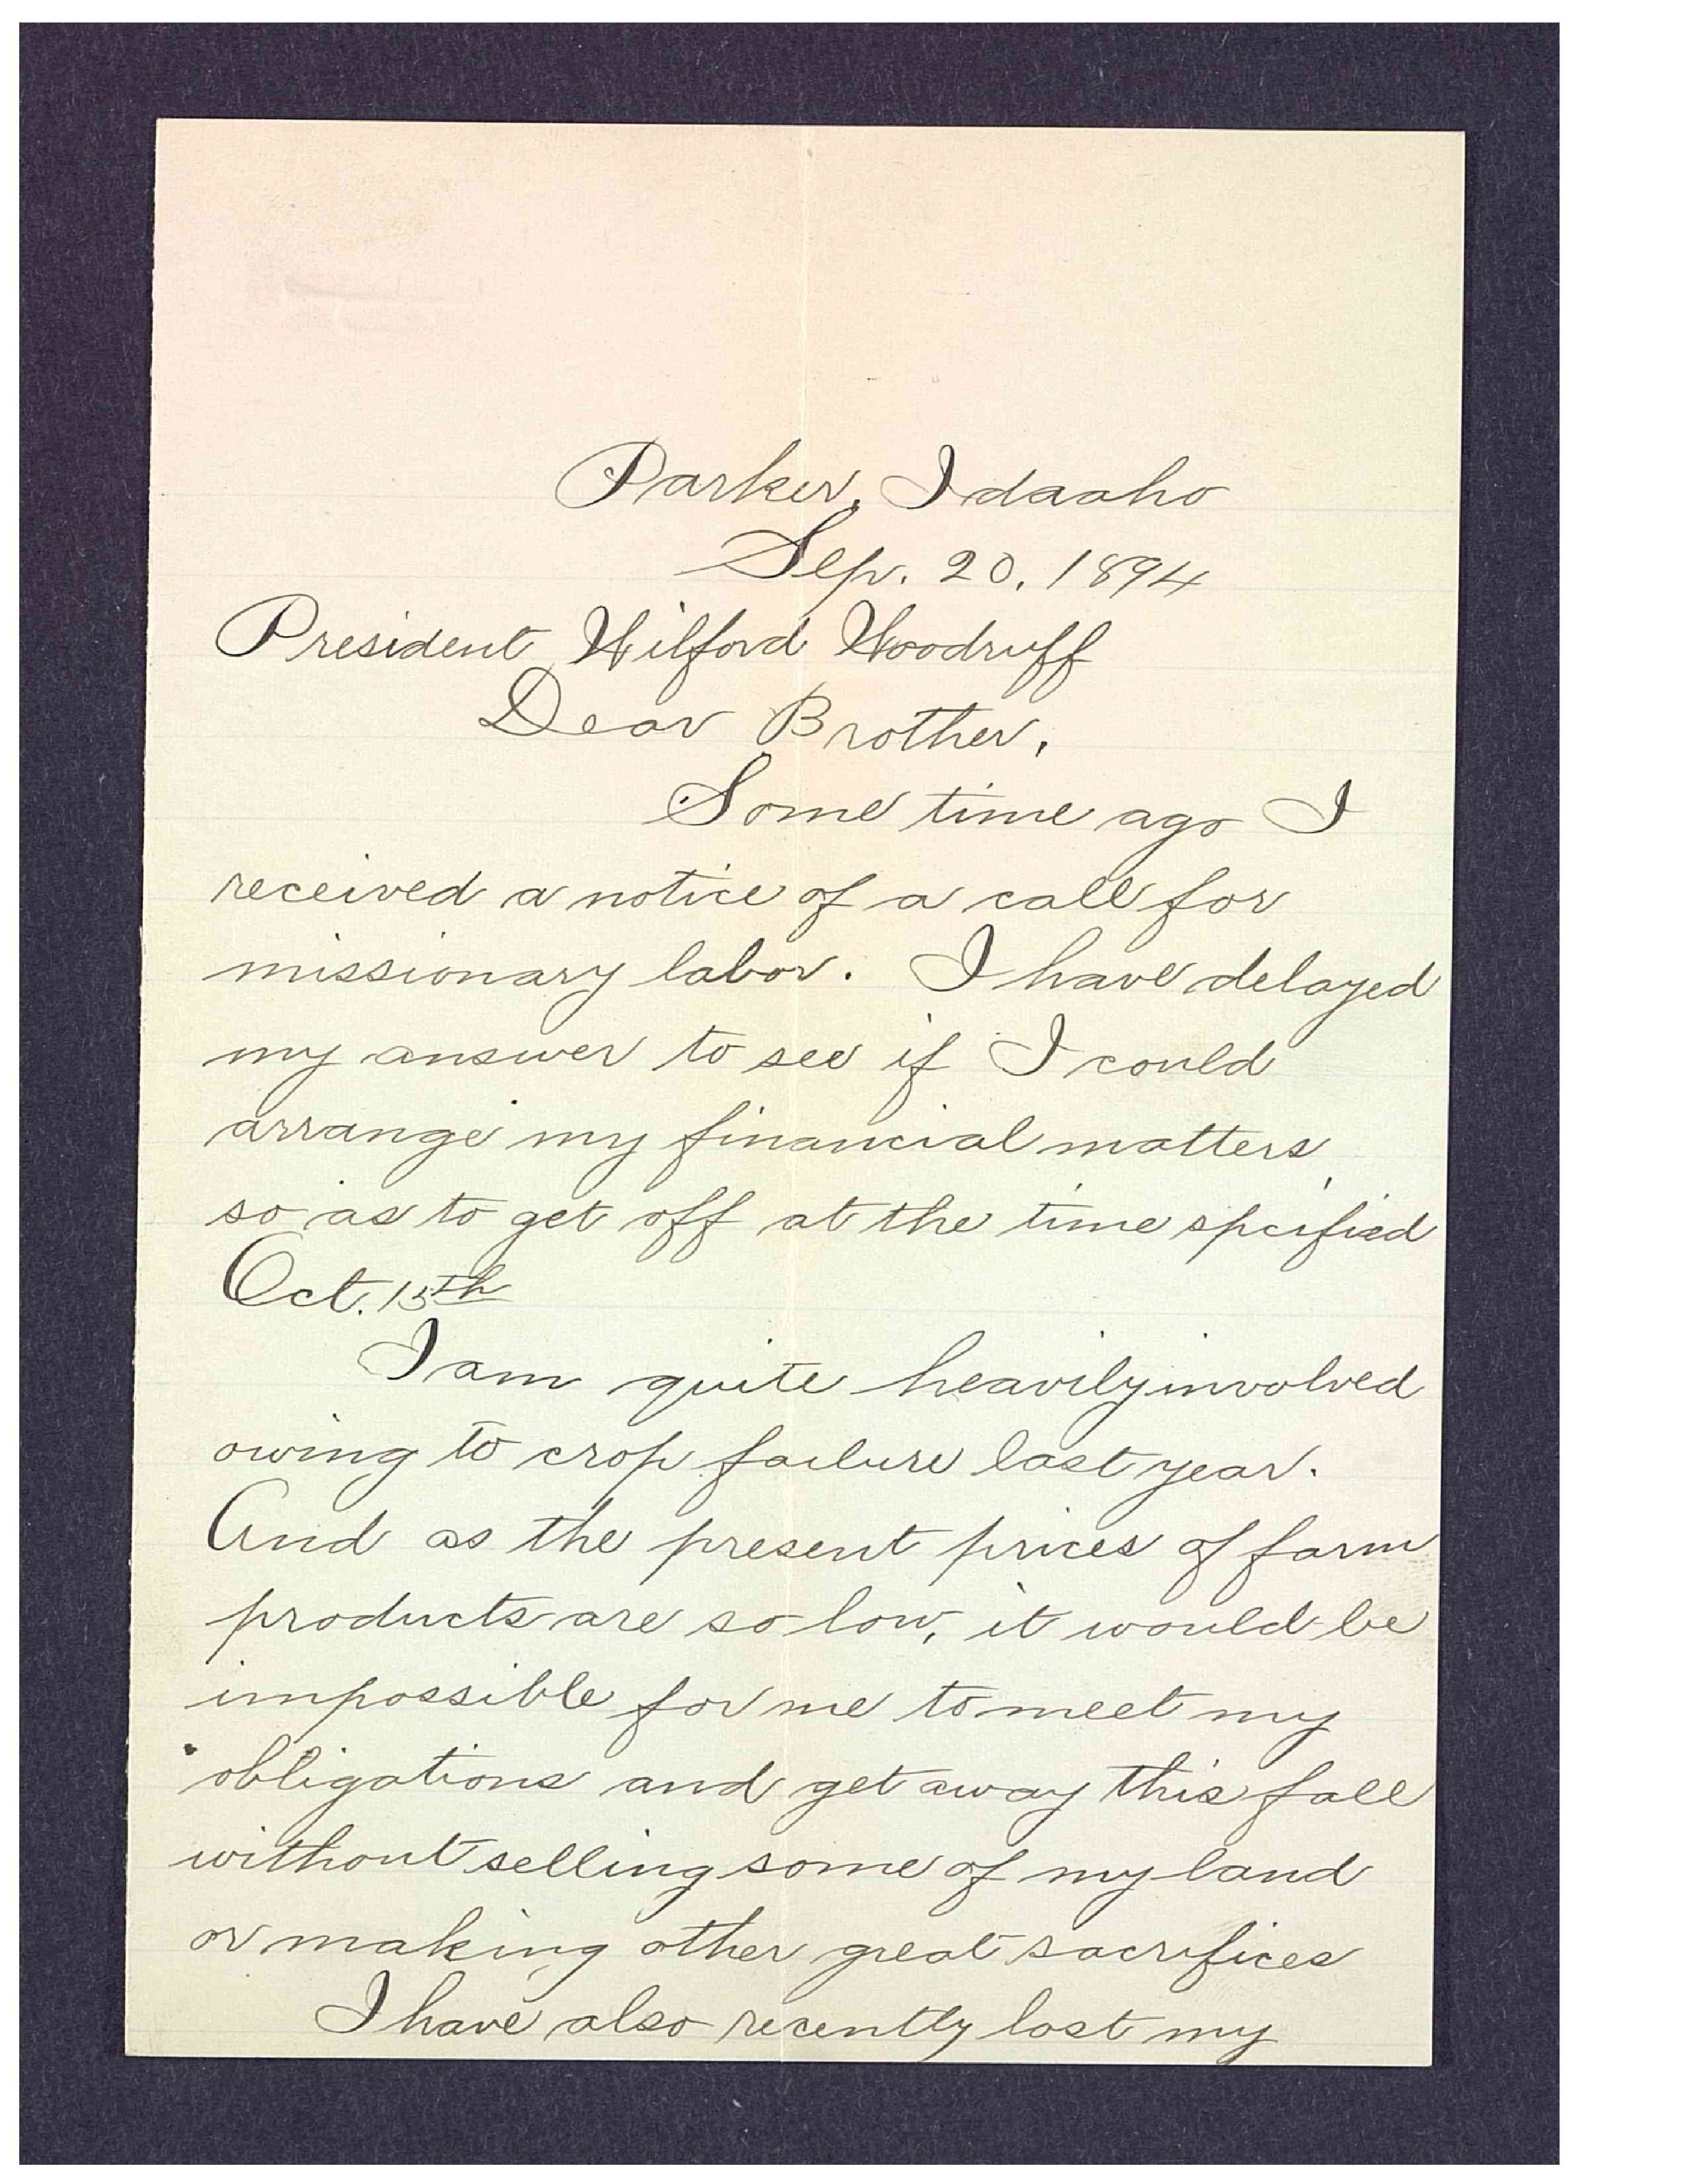 Parker, Idaaho
Sep. 20, 1894
President Wilford Woodruff
Dear Brother,
Some time ago I
received a notice of a call for
missionary labor. I have delayed
my answer to see if I could
arrange my financial matters
so as to get off at the time spcified
Oct. 15th
I am quite heavily involved
owing to crop failure last year.
And as the present prices of farm
products are so low, it would be
impossible for me to meet my
obligations and get away this fall
without selling some of my land
or making other great sacrifices
I have also recently lost my